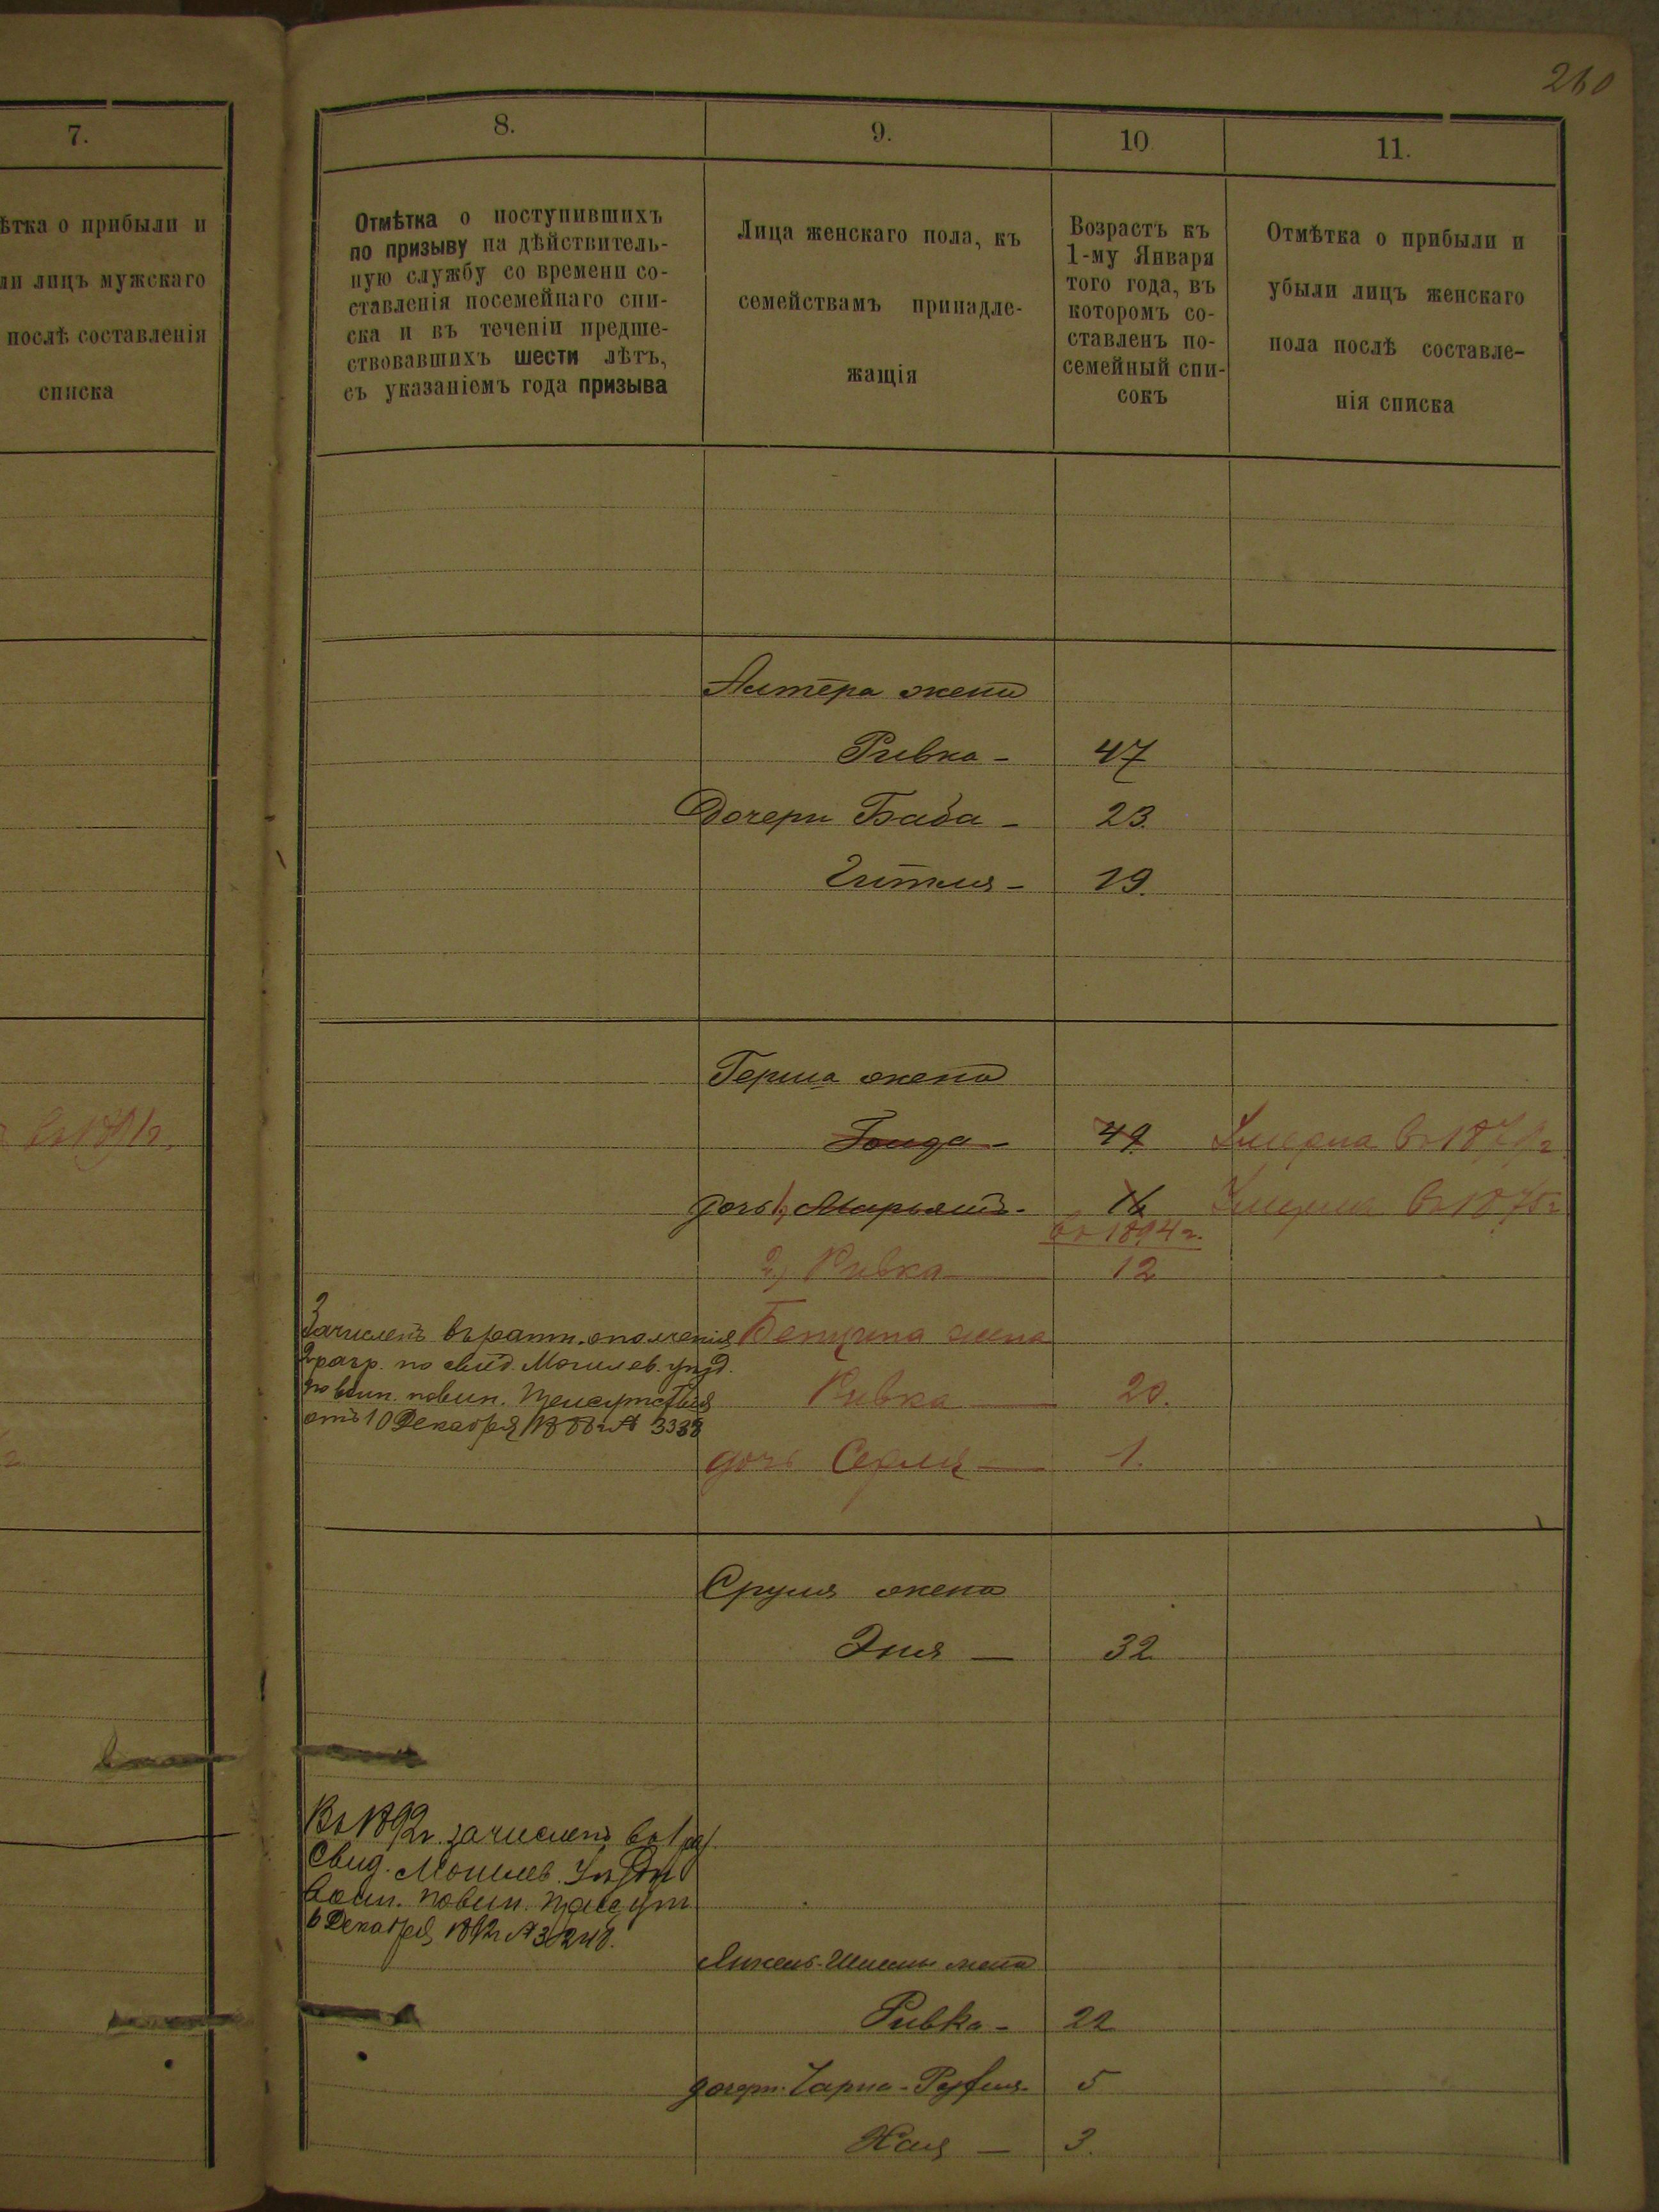 260
7.
ѣтка о прибыли и
ли лицъ мужскаго
послѣ составленія
списка
въ 1891г.
8.
Отмѣтка о поступившихъ
по призыву на дѣйствитель-
ную службу со времени со-
ставленія посемейнаго спи-
ска и въ теченіи предше-
ствовавшихъ шести лѣтъ,
съ указаніемъ года призыва
9.
Лица женскаго пола, къ
семействамъ принадле-
жащія
10
Возрастъ къ
1-му Января
того года, въ
которомъ со-
ставленъ по-
семейный спи-
сокъ
11.
Отмѣтка о прибыли и
убыли лицъ женскаго
пола послѣ составле-
нія списка
Алтера жена
Ривка - 47
Дочери Баба - 23.
Гитля - 19.
Герша жена
49 Умерла въ
дочь 1) Марьямъ - 16 Умерла въ 1875г
въ 1894г.
2) Ривка 12
Зачисленъ въ ратн. ополченія
2 разр. по свид. Могилев. уѣзд.
по воин. повин. Присутствія
отъ 10 Декабря 1888г № 3338
жена
Ривка 20.
дочь 1.
Сруля жена
Эня — 32
Въ 1892г. зачисленъ въ 1 раз.
свид. Могилев. Уѣздн
воин. повин. присут
6 Декабря 1892г № 3248.
жена
Ривка - 22
дочери: Чарна - 5
Хая — 3.